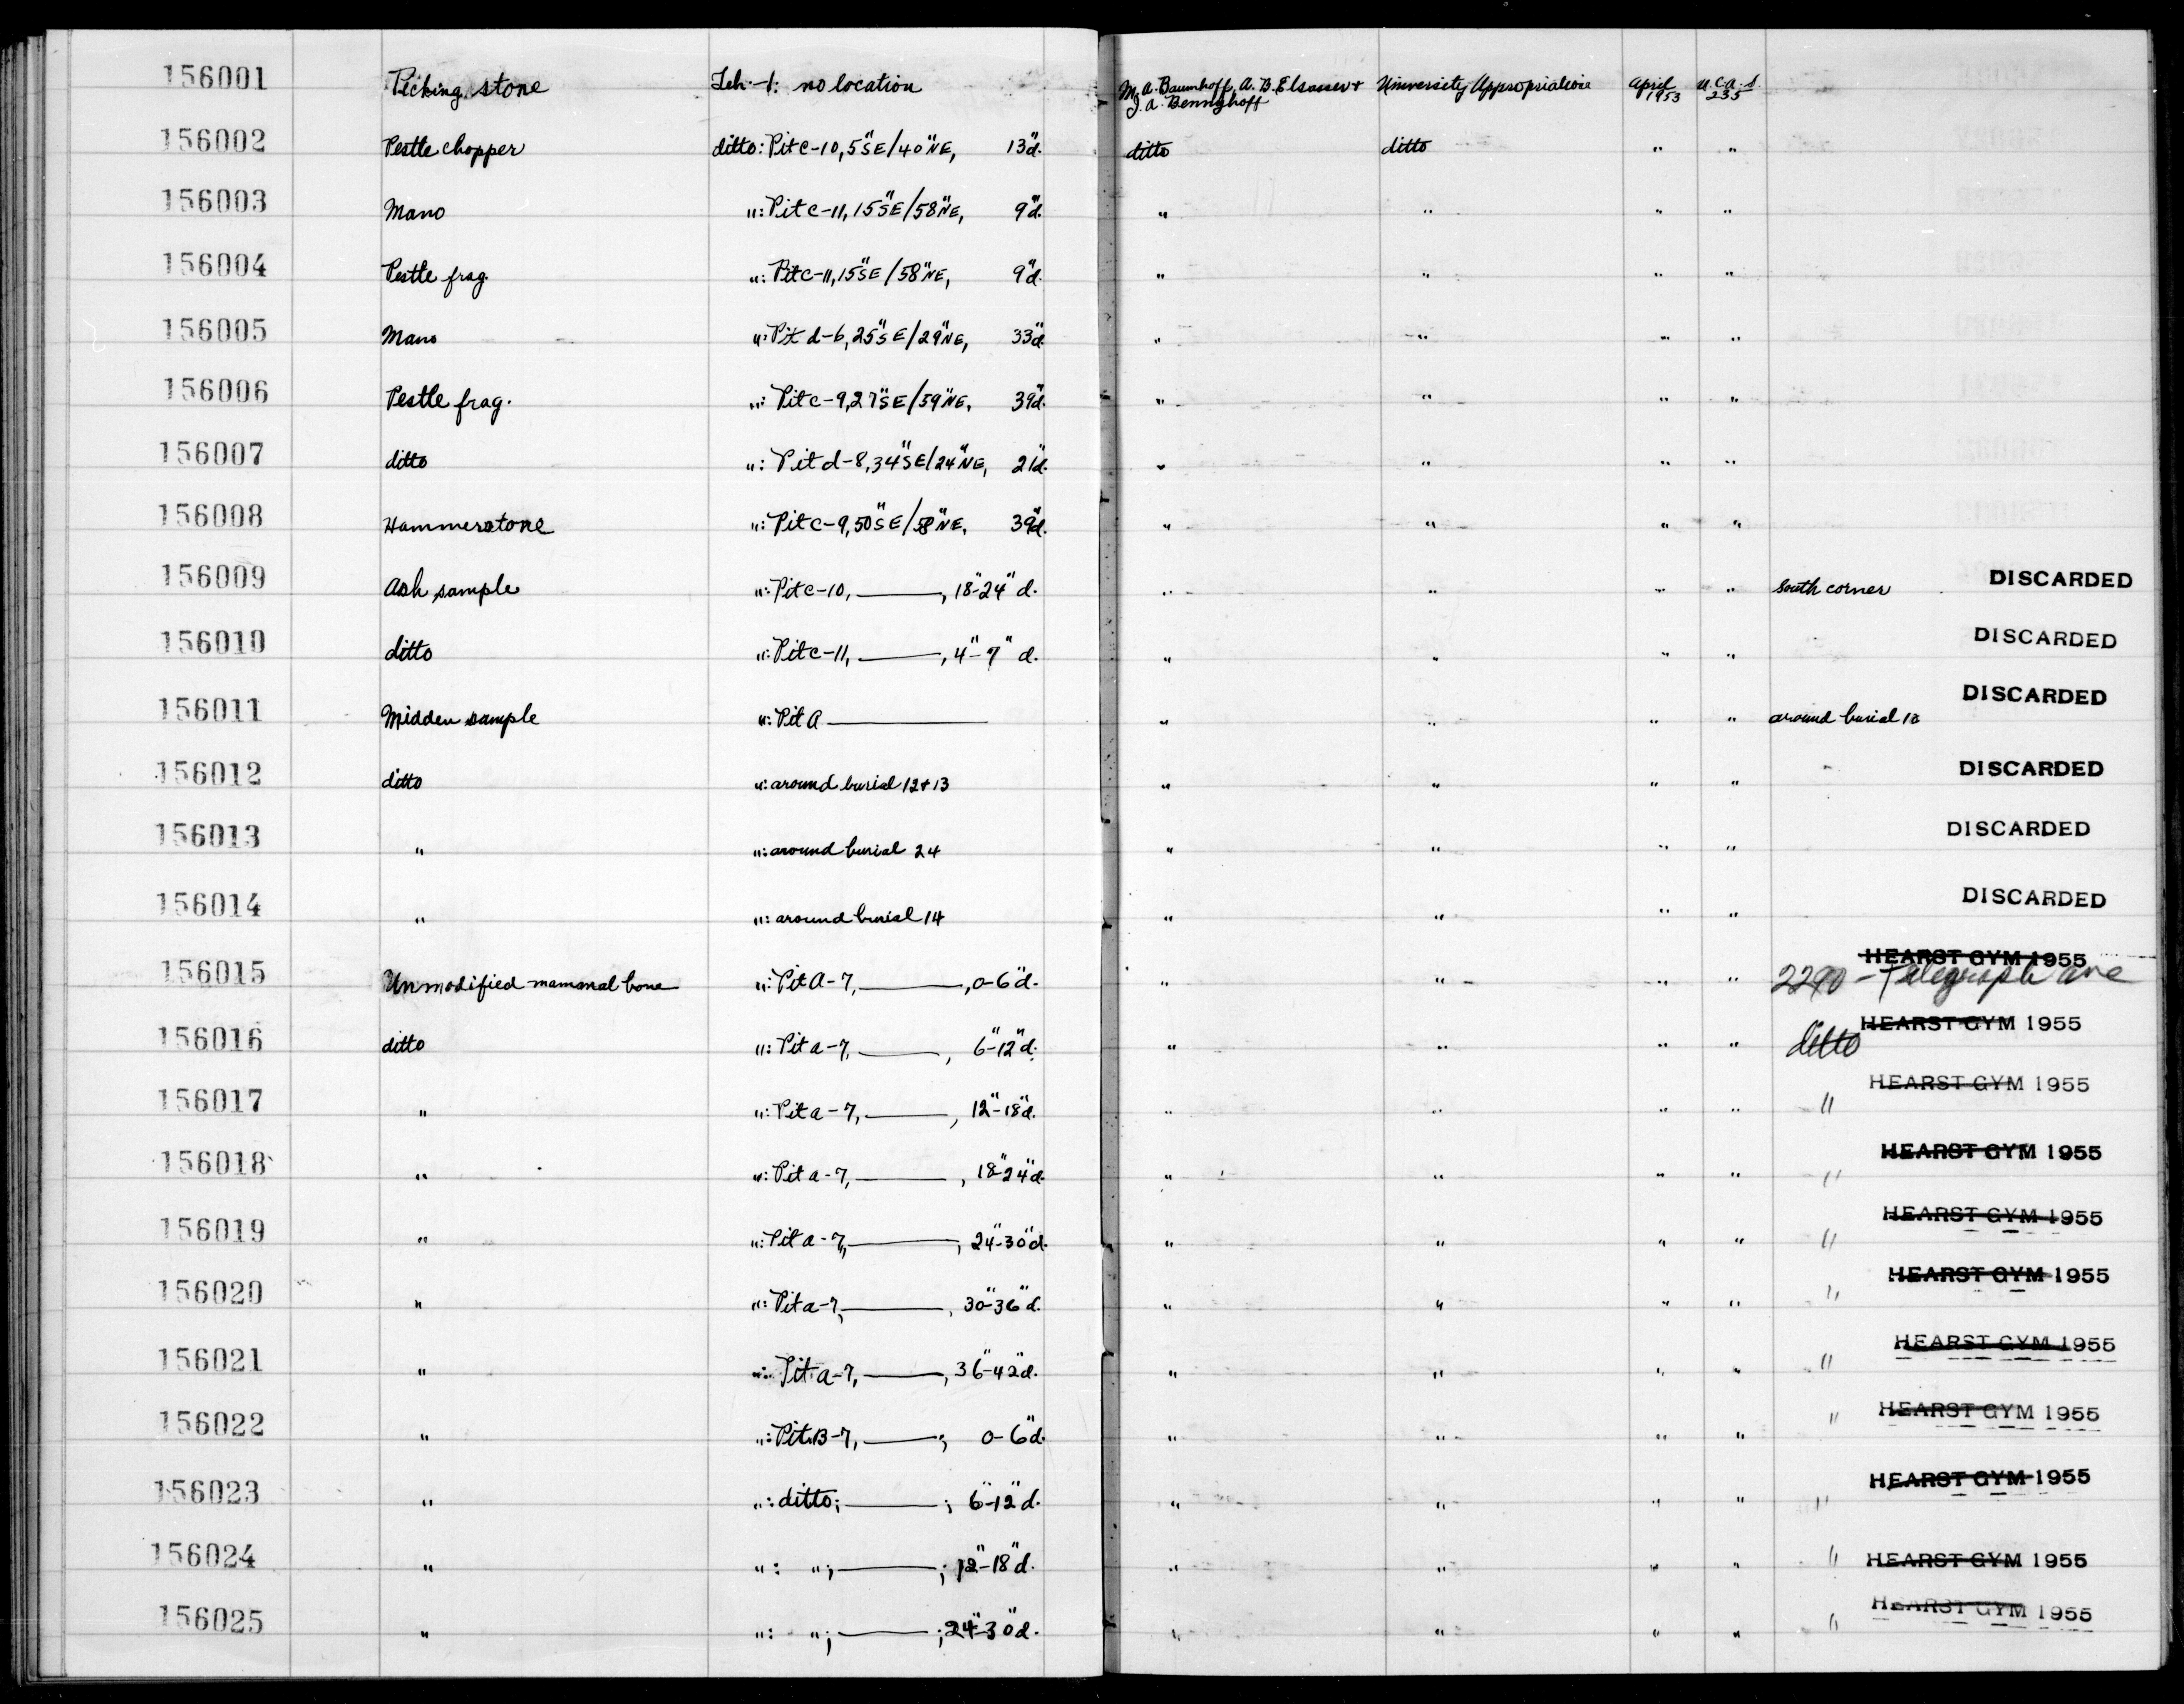 156001 Picking stone Teh-1: no location M. A. Baumhoff, A. B. Elsasser + J. A. Bennyhoff University Appropriation April 1953 U.C.A.S. 235
156002 Pestle chopper ditto: Pit c-10, 5"SE/40"NE, 13"d. ditto ditto " "
156003 Mano ": Pit c-11, 15"SE/58"NE, 9"d. " " " "
156004 Pestle frag. ": Pit c-11, 15"SE/58"NE, 9"d. " " " "
156005 Mano ": Pit d-6, 25"SE/29"NE, 33"d. " " " "
156006 Pestle frag. ": Pit c-9, 27"SE/59"NE, 39"d. " " " "
156007 ditto ": Pit d-8, 34"SE/24"NE, 21"d. " " " "
156008 Hammerstone ": Pit c-9, 50"SE/58"NE, 39"d. " " " "
156009 Ash sample ": Pit c-10, ——, 18"-24" d. " " " " South corner DISCARDED
156010 ditto ": Pit c-11, ——, 4"-7" d. " " " " DISCARDED
156011 Midden sample ": Pit A —— " " " " around burial 12 DISCARDED
156012 ditto ": around burial 12+13 " " " " DISCARDED
156013 " ": around burial 24 " " " " DISCARDED
156014 " ": around burial 14 " " " " DISCARDED
156015 Unmodified mammal bone ": Pit A-7, ——, 0-6"d. " " " " HEARST GYM 1955 2290 - Telegraph ave
156016 ditto ": Pit a-7, ——, 6"-12"d. " " " " ditto HEARST GYM 1955
156017 " ": Pit a-7, ——, 12"-18"d. " " " " " HEARST GYM 1955
156018 " ": Pit a-7, ——, 18"24"d. " " " " " HEARST GYM 1955
156019 " ": Pit a-7, ——, 24"-30"d. " " " " " HEARST GYM 1955
156020 " ": Pit a-7, ——, 30"-36"d. " " " " " HEARST GYM 1955
156021 " ": Pit a-7, ——, 36"-42"d. " " " " " HEARST GYM 1955
156022 " ": Pit B-7, ——; 0-6"d. " " " " " HEARST GYM 1955
156023 " ": ditto; ——; 6"-12"d. " " " " " HEARST GYM 1955
156024 " ": "; ——; 12"-18"d. " " " " " HEARST GYM 1955
156025 " ": "; ——; 24"-30"d. " " " " " HEARST GYM 1955